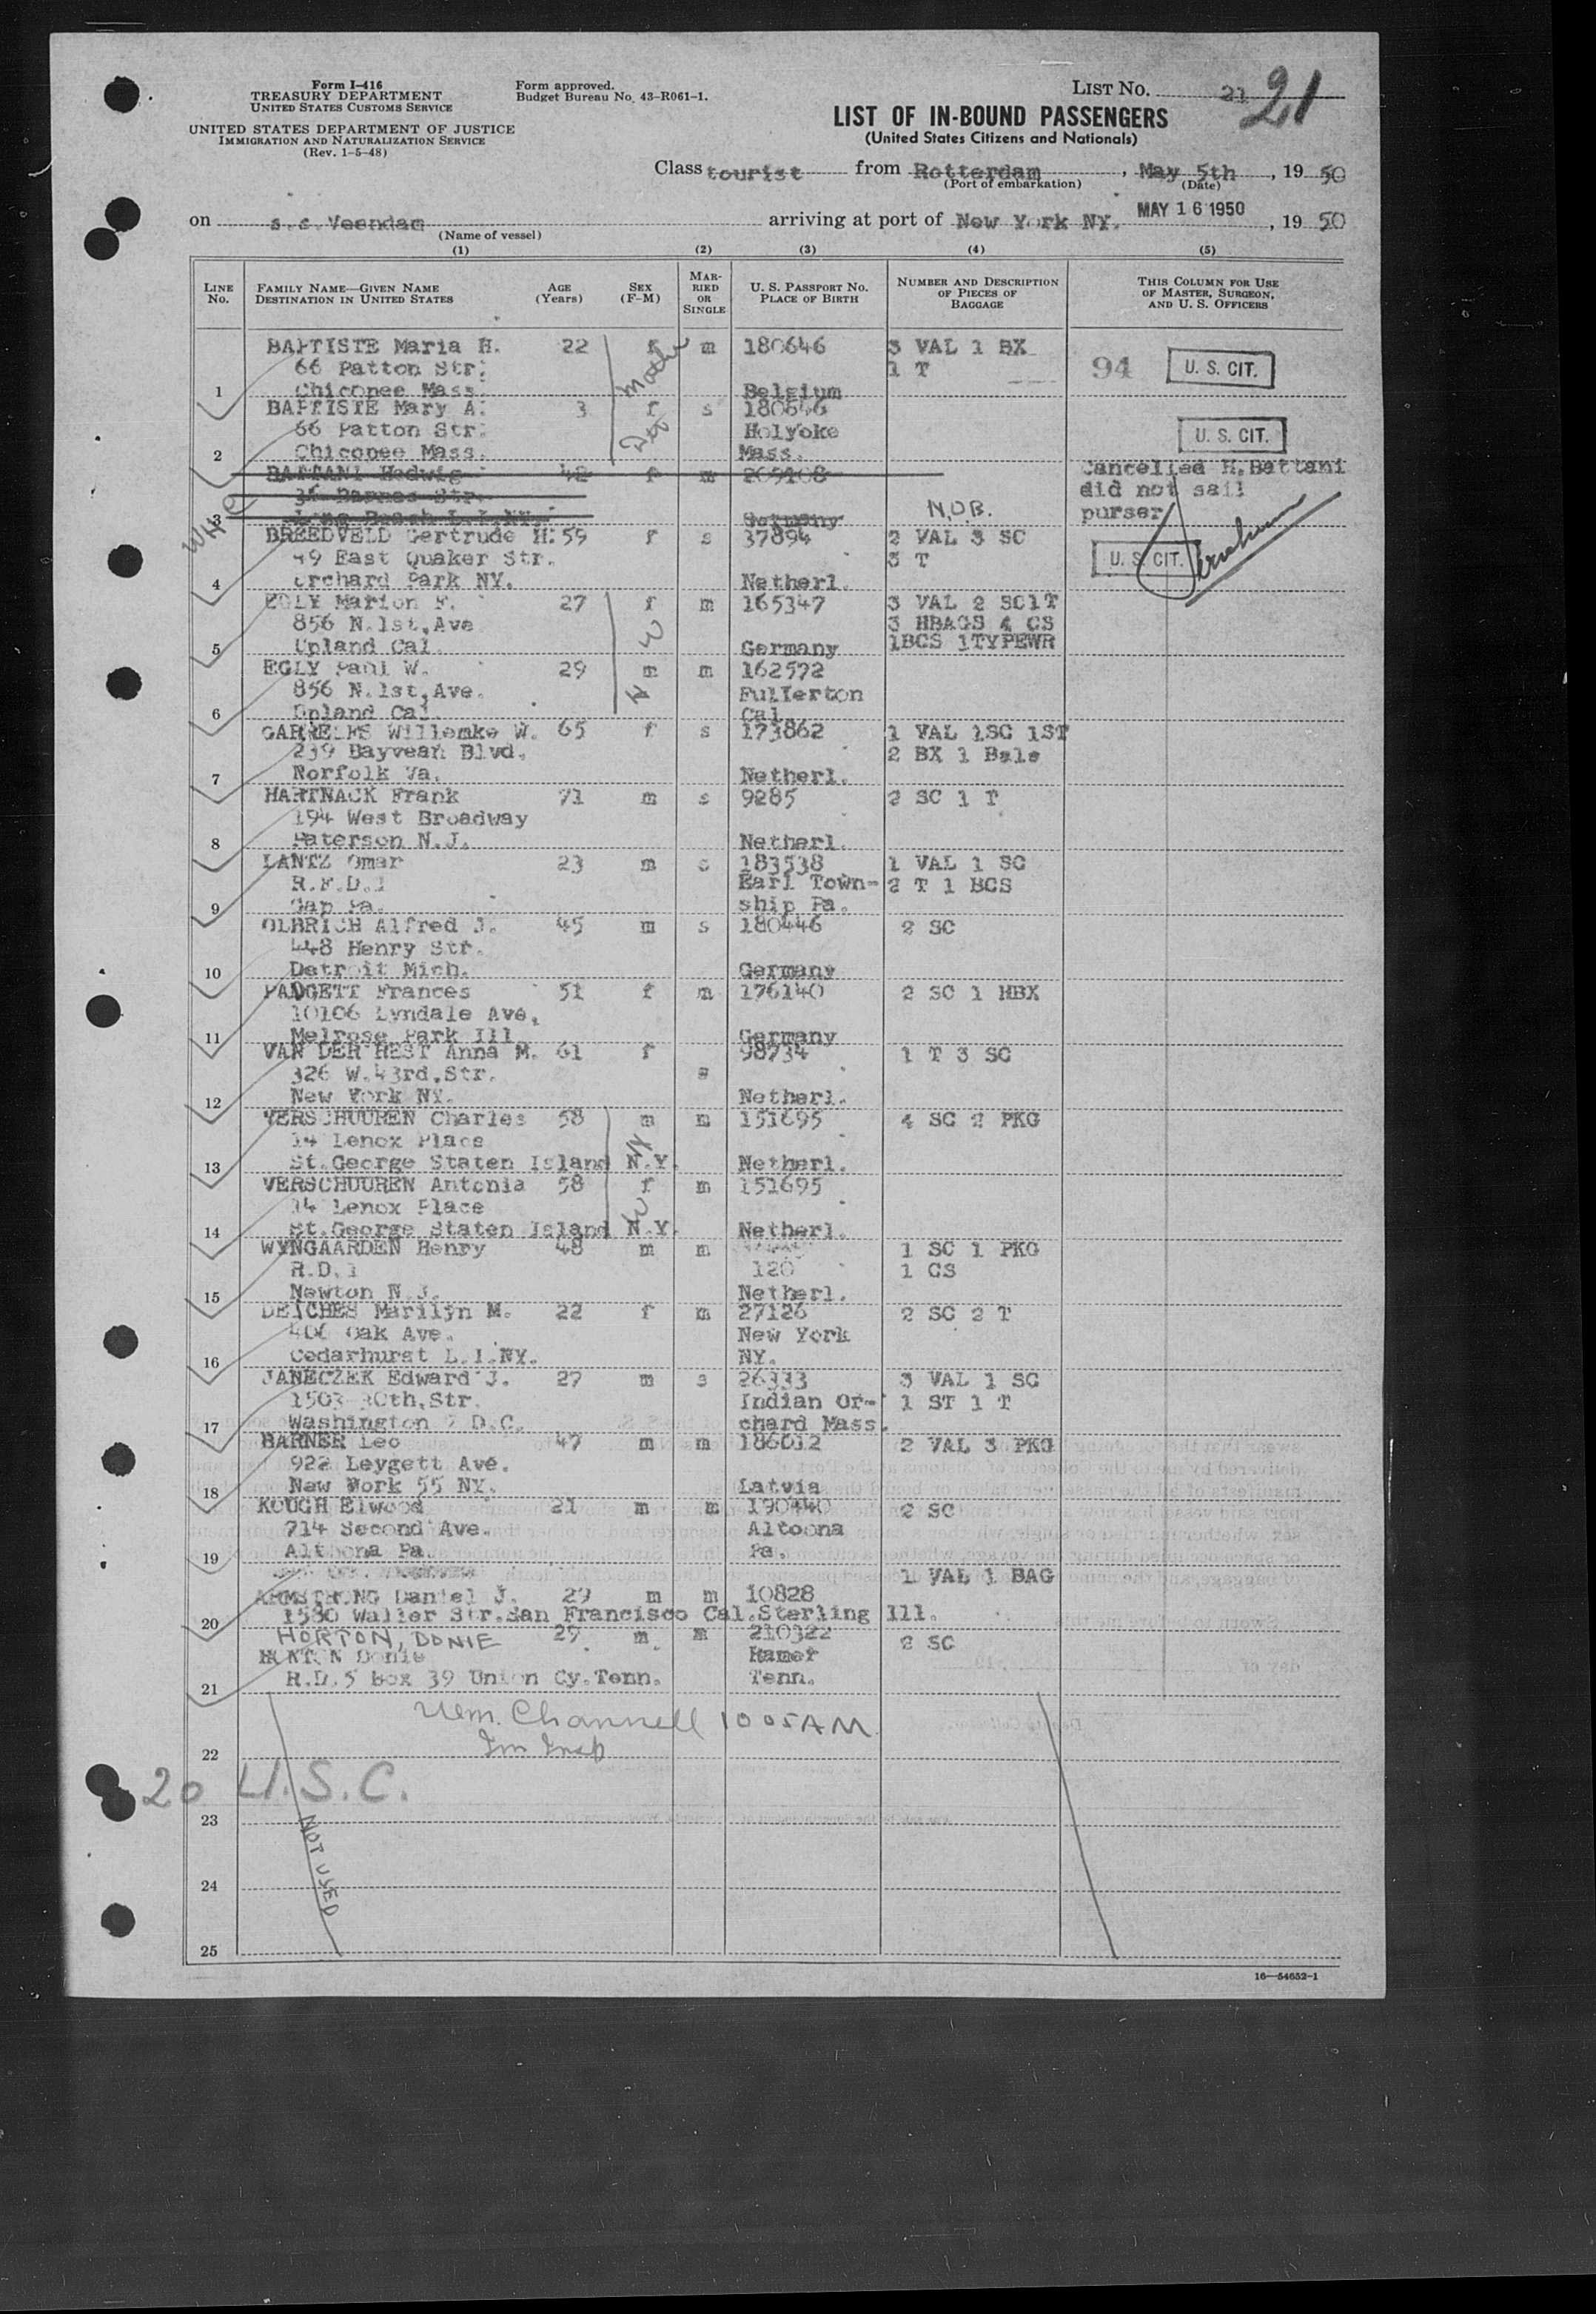 Form I-416
TREASURY DEPARTMENT
UNITED STATES CUSTOMS SERVICE
UNITED STATES DEPARTMENT OF JUSTICE
IMMIGRATION AND NATURALIZATION SERVICE
(Rev. 1-5-48)
Form approved.
Budget Bureau No. 43-R061-1.
LIST No. 21 21
LIST OF IN-BOUND PASSENGERS
(United States Citizens and Nationals)
Class tourist from Rotterdam, May 5th, 19 50
(Port of embarkation) (Date)
on s.s. Veendam arriving at port of New York NY. MAY 16 1950, 19 50
(Name of vessel)
(1) (2) (3) (4) (5)
LINE No. FAMILY NAME—GIVEN NAME DESTINATION IN UNITED STATES AGE (Years) SEX (F-M) MARRIED OR SINGLE U. S. PASSPORT NO. PLACE OF BIRTH NUMBER AND DESCRIPTION OF PIECES OF BAGGAGE THIS COLUMN FOR USE OF MASTER, SURGEON, AND U. S. OFFICERS
BAPTISTE Maria H. 22 f m 180646 3 VAL 1 BX
66 Patton Str. 1 T 94 U. S. CIT.
1 Chicopee Mass. Belgium
BAPTISTE Mary A. 3 f s 180646
66 Patton Str. Holyoke U. S. CIT.
2 Chicopee Mass. Mass.
BATTANI Hedwig 42 f m 209108 Cancelled H.Battani
did not sail
3 Long Beach L.I.NY. Germany N.O.B. purser
BREEDVELD Gertrude H. 59 f s 37894 2 VAL 3 SC
49 East Quaker Str. 3 T U. S. CIT.
4 Orchard Park NY. Netherl.
EGLY Marion F. 27 f m 165347 3 VAL 2 SC1T
856 N.1st,Ave 3 HBAGS 4 CS
5 Upland Cal. Germany 1BCS 1TYPEWR
EGLY Paul W. 29 m m 162572
856 N.1st,Ave. Fullerton
6 Upland Cal. Cal.
GARRELFS Willemke W. 65 f s 173862 1 VAL 1SC 1ST
239 Bayveah Blvd. 2 BX 1 Bale
7 Norfolk Va. Netherl.
HARTNACK Frank 71 m s 9285 2 SC 1 T
194 West Broadway
8 Paterson N.J. Netherl.
LANTZ Omar 23 m s 183538 1 VAL 1 SC
R.F.D.1 Earl Town- 2 T 1 BCS
9 Gap Pa. ship Pa.
OLBRICH Alfred J. 45 m s 180446 2 SC
448 Henry Str.
10 Detroit Mich. Germany
PADGETT Frances 51 f m 176140 2 SC 1 HBX
10106 Lyndale Ave,
11 Melrose Park Ill Germany
VAN DER HEST Anna M. 61 f 98734 1 T 3 SC
326 W.43rd,Str. s
12 New York NY. Netherl.
VERSCHUUREN Charles 58 m m 151695 4 SC 2 PKG
14 Lenox Place
13 St.George Staten Island N.Y. Netherl.
VERSCHUUREN Antonia 58 f m 151695
14 Lenox Place
14 St.George Staten Island N.Y. Netherl.
WYNGAARDEN Henry 48 m m 1 SC 1 PKG
R.D.1 120 1 CS
15 Newton N.J. Netherl.
DEICHES Marilyn M. 22 f m 27126 2 SC 2 T
406 Oak Ave. New York
16 Cedarhurst L.I.NY. NY.
JANECZEK Edward J. 27 m s 26333 3 VAL 1 SC
1503 30th,Str. Indian Or- 1 ST 1 T
17 Washington 7 D.C. chard Mass.
BARNER Leo 47 m m 186012 2 VAL 3 PKG
922 Leygett Ave.
18 New Work 55 NY. Latvia
KOUGH Elwood 21 m m 190440 2 SC
714 Second Ave. Altoona
19 Altoona Pa. Pa.
1 VAL 1 BAG
ARMSTRONG Daniel J. 29 m m 10828
20 1580 Waller Str.San Francisco Cal.Sterling Ill.
HORTON, DONIE 29 m m 210322 2 SC
HORTON Donie Ramer
21 R.D.5 box 39 Union Cy.Tenn. Tenn.
Wm. Channell 10 05 AM
22 Im Insp
20 U.S.C.
23
NOT USED
24
25
16—54652-1